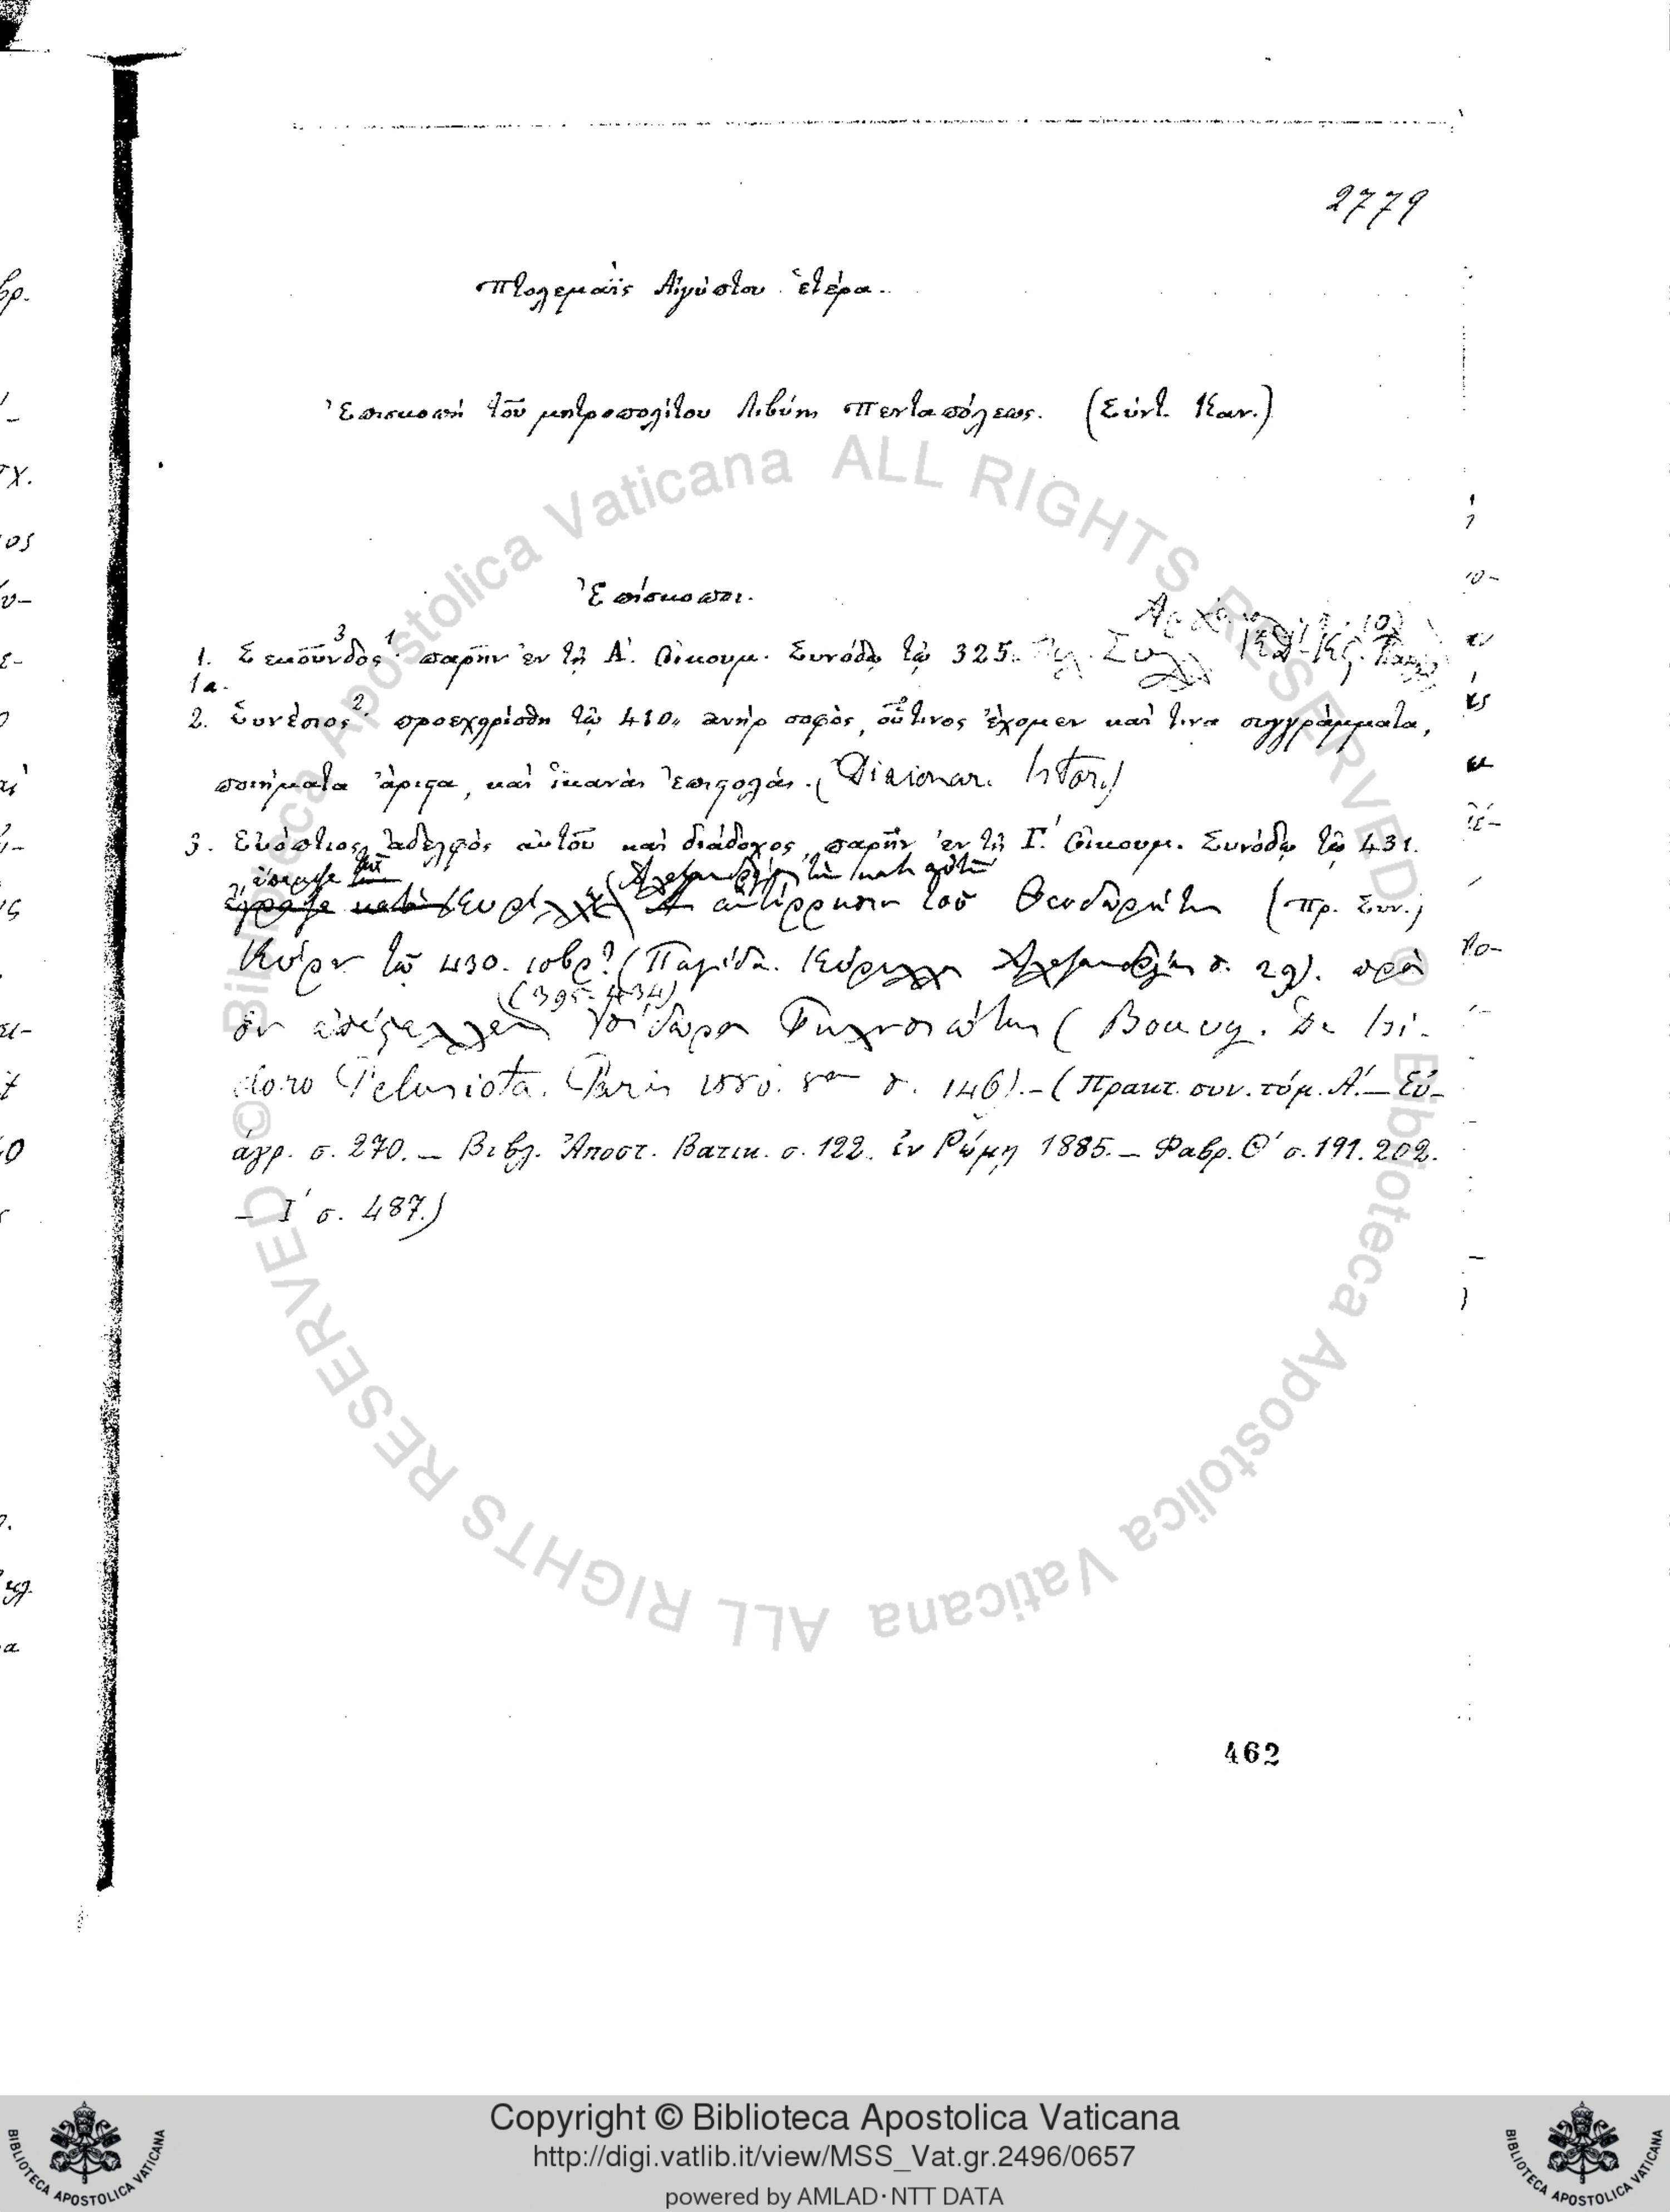 2779
Πτολεμαΐς Αἰγύπτου ἑτέρα.
Ἐπισκοπὴ τοῦ μητροπολίτου Λιβύης Πενταπόλεως. (Σύντ. Καν.)
Ἐπίσκοποι.
1. Σεκοῦνδος 3 1. παρῆν ἐν τῇ Α΄. Οἰκουμ. Συνόδῳ τῷ 325.
1α.
2. Συνέσιος 2. προεχειρίσθη τῷ 410, ἀνὴρ σοφὸς, οὗτινος ἔχομεν καὶ τινα συγγράμματα,
ποιήματα ἄριστα, καὶ ἱκανὰς ἐπιστολάς. (Dizionar. Istor.)
3. Εὐόπτιος, ἀδελφὸς αὐτοῦ καὶ διάδοχος, παρῆν ἐν τῇ Γ΄. Οἰκουμ. Συνόδῳ τῷ 431.
ἀντίρρησιν τοῦ Θεοδωρήτου (Πρ. Συν.)
Κύρου τῷ 430. (Παγίδα. Κύριλλος Ἀλεξανδρείας σ. 29). πρὸς
(395-434)
ὃν ἐπέστελλεν Ἰσίδωρος Πηλουσιώτης (Bouvy. De Isi-
doro Pelusiota. Paris σ. 146).-(Πρακτ. συν. τόμ. Α΄. — Εὐ-
άγρ. σ. 270. — Βιβλ. Ἀποστ. Βατικ. σ. 122. ἐν Ῥώμῃ 1885. — Φαβρ. Θ΄ σ. 191. 202.
— Ι΄ σ. 487.)
462
Copyright © Biblioteca Apostolica Vaticana
http://digi.vatlib.it/view/MSS_Vat.gr.2496/0657
powered by AMLAD·NTT DATA
BIBLIOTECA APOSTOLICA VATICANA
BIBLIOTECA APOSTOLICA VATICANA
© Biblioteca Apostolica Vaticana ALL RIGHTS RESERVED
© Biblioteca Apostolica Vaticana ALL RIGHTS RESERVED